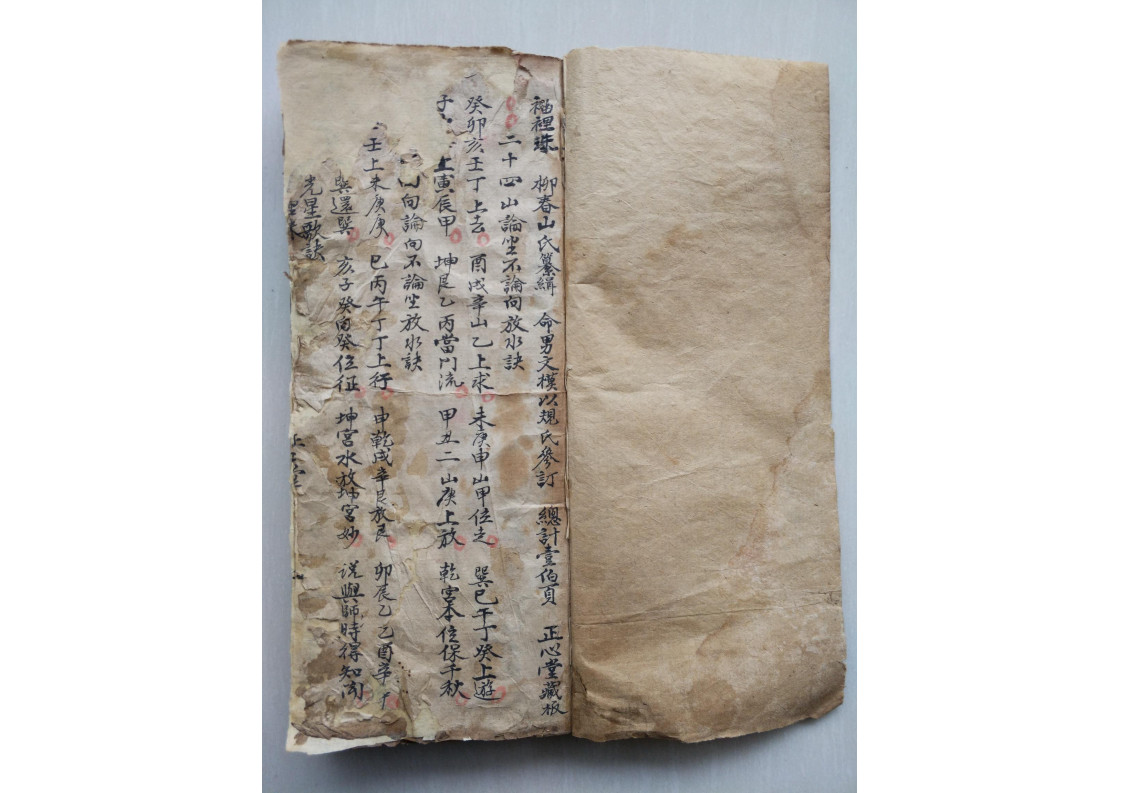 袖裡珠 柳春山氏纂緝 命男文模以規氏參訂 總計壹伯頁 正心堂藏板
二十四山論坐不論向放水訣
癸卯亥壬丁上去 酉戌辛山乙上求 未庚申山甲位走 巽巳午丁癸上遊
子 上寅辰甲 坤艮乙丙當門流 甲丑二山庚上放 乾宮本位保千秋
向論向不論坐放水訣
壬上未庚庚 巳丙午丁丁上行 申乾戌辛艮放艮 卯辰乙乙酉辛
巽還巽 亥子癸向癸位征 坤宮水放坤宮妙 説與師時得知聞
光星歌訣